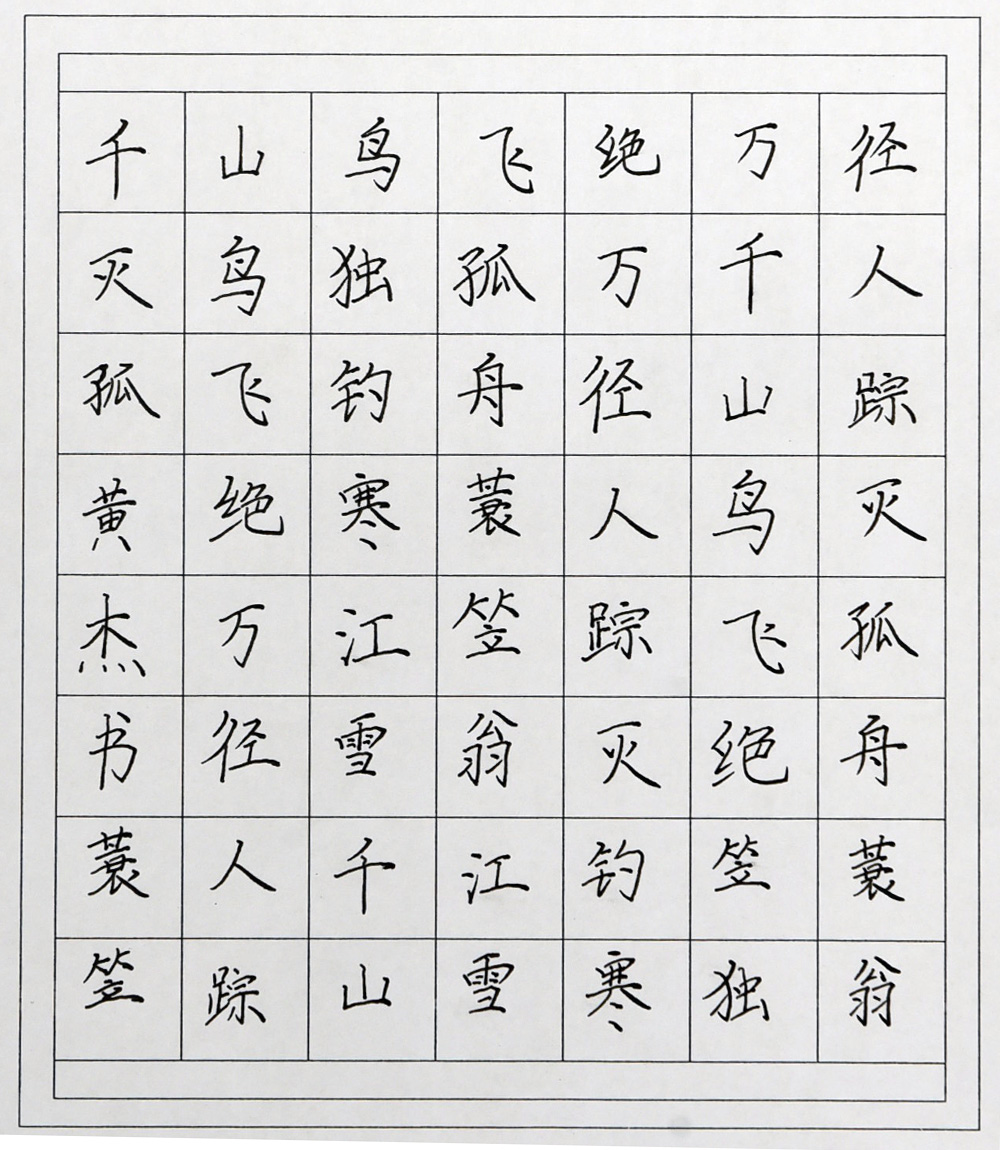 径人踪灭孤舟蓑翁
万千山鸟飞绝笠独
绝万径人踪灭钓寒
飞孤舟蓑笠翁江雪
鸟独钓寒江雪千山
山鸟飞绝万径人踪
千灭孤黄杰书蓑笠